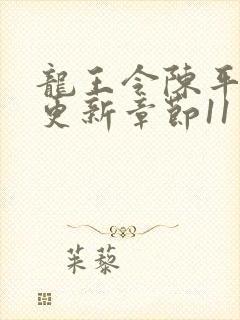 龍王令陳平
更新章節11
茱藜